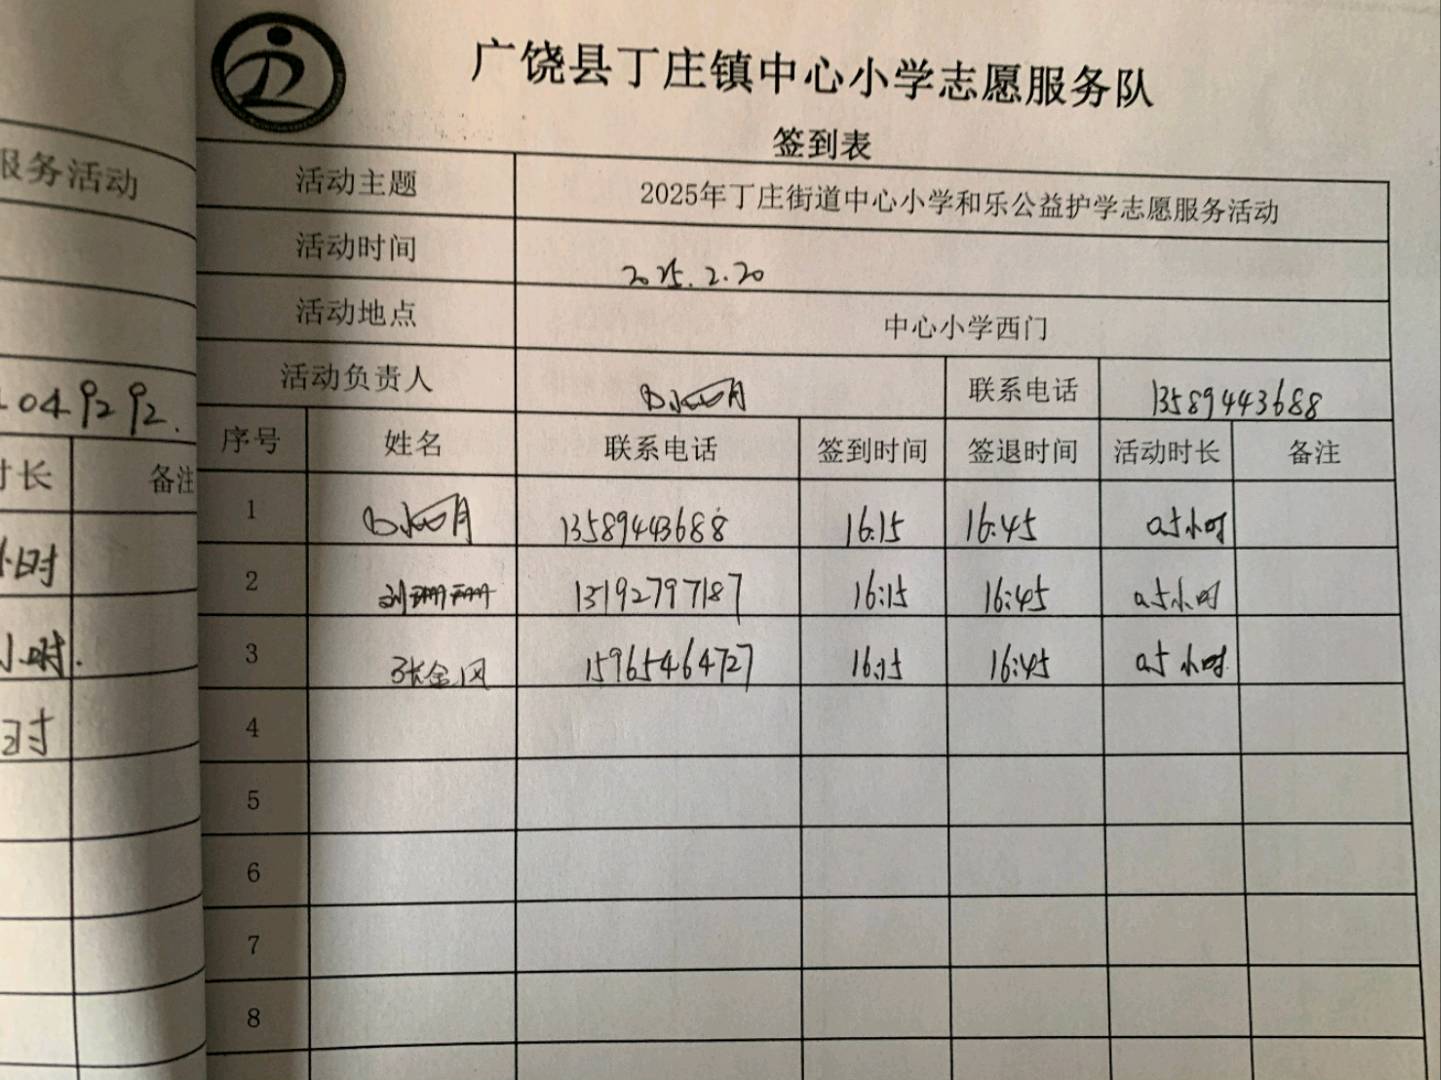 广饶县丁庄镇中心小学志愿服务队
签到表
服务活动
活动主题 2025年丁庄街道中心小学和乐公益护学志愿服务活动
活动时间 2025.2.20
活动地点 中心小学西门
活动负责人 联系电话 13589443688
049292.
时长 备注
序号 姓名 联系电话 签到时间 签退时间 活动时长 备注
1 13589443688 16:15 16:45 0.5小时
小时
2 刘珊珊 13192797187 16:15 16:45 0.5小时
小时.
3 张金凤 15965464727 16:15 16:45 0.5小时
时
4
5
6
7
8